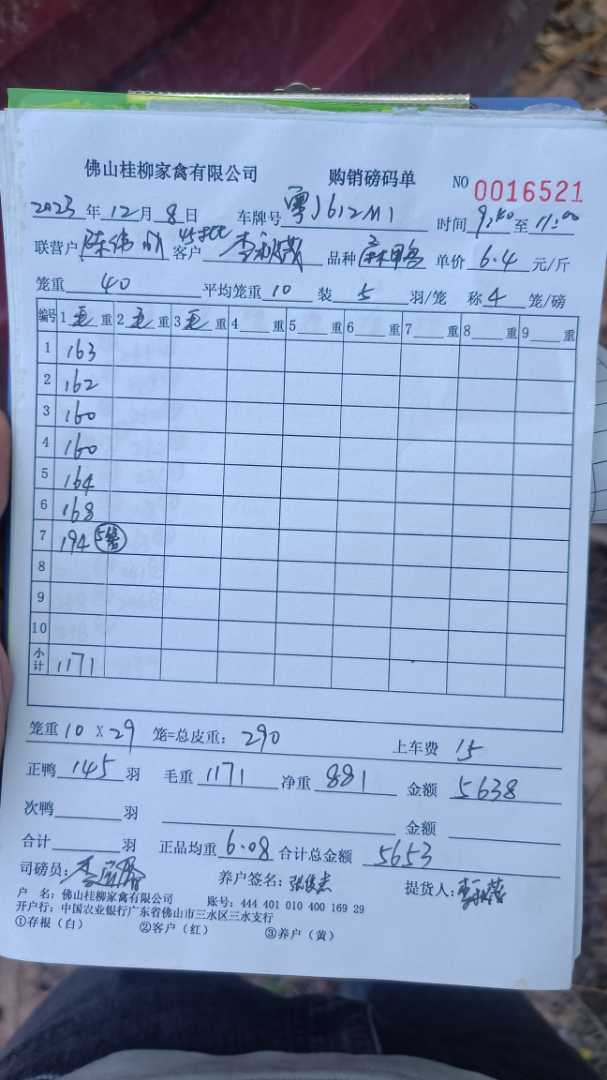 佛山桂柳家禽有限公司 购销磅码单 NO 0016521
2023年12月8日 车牌号 粤J612M1 时间 9:40至11:00
联营户 陈伟 客户 李 品种 麻鸭 单价 6.4 元/斤
笼重 40 平均笼重 10 装 5 羽/笼 称 4 笼/磅
编号 1 毛 重 2 毛 重 3 毛 重 4 重 5 重 6 重 7 重 8 重 9 重
1 163
2 162
3 160
4 160
5 164
6 168
7 194 5笼
8
9
10
小计 1171
笼重 10 X 29 笼=总皮重: 290 上车费 15
正鸭 145 羽 毛重 1171 净重 881 金额 5638
次鸭 羽 金额
合计 羽 正品均重 6.08 合计总金额 5653
司磅员: 李 养户签名: 张俊杰 提货人: 李
户 名: 佛山桂柳家禽有限公司 账号: 444 401 010 400 169 29
开户行: 中国农业银行广东省佛山市三水区三水支行
①存根(白) ②客户(红) ③养户(黄)